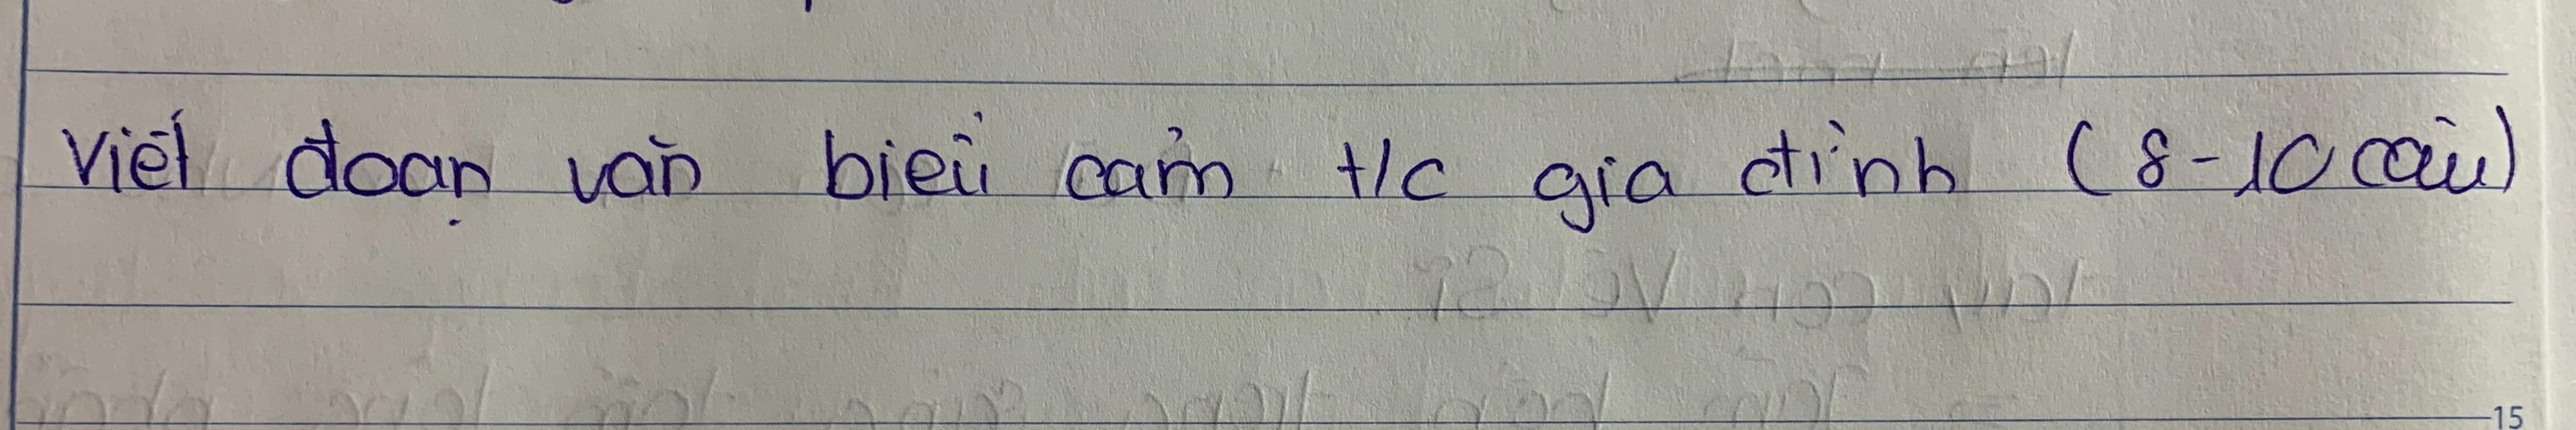 Viết đoạn văn biểu cảm t/c gia đình (8-10 câu)
15